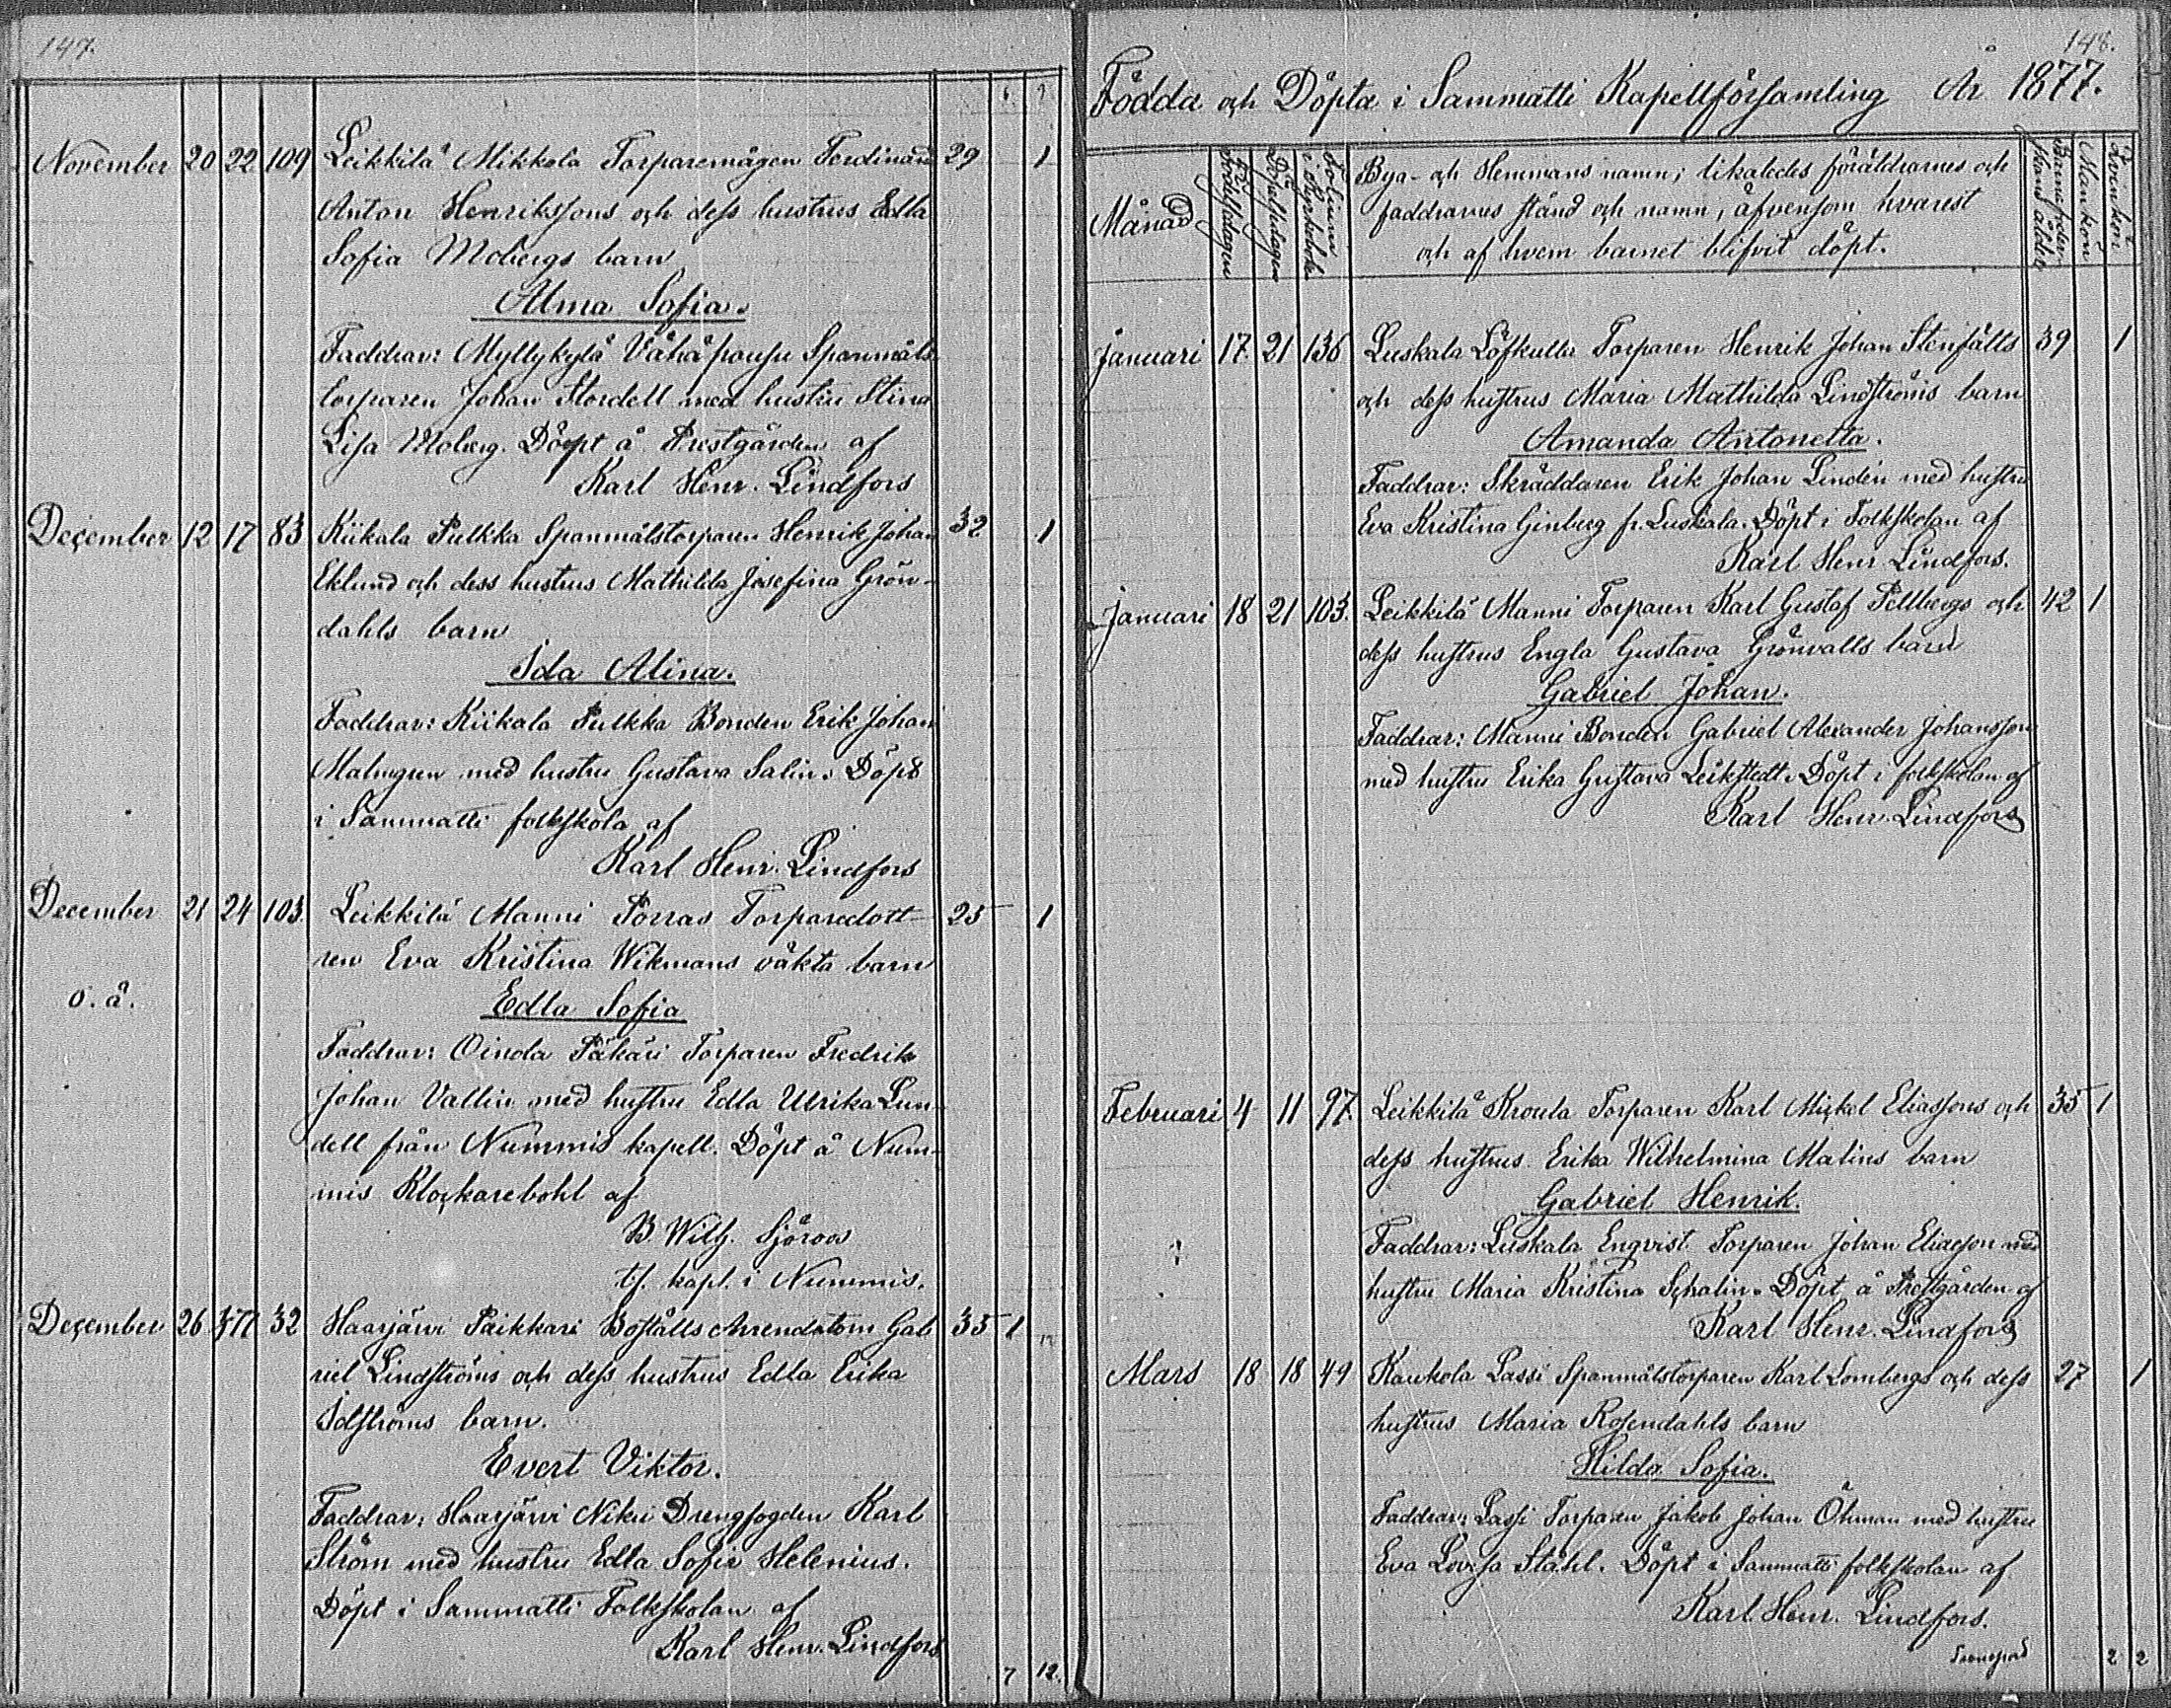 147.
6 9
November 20 22 109 Leikkilä Mikkola Torparemågen Ferdinand 29 1
Anton Henrikssons och dess hustrus Edla
Sofia Mobergs barn
Alma Sofia.
Faddrar: Myllykylä Vähäpousu Spanmåls
torparen Johan Stordell med hustru Stina
Lisa Moberg. Döpt å Prestgården af
Karl Henr. Lindfors
December 12 17 83 Kiikala Pulkka Spanmålstorparen Henrik Johan 32 1
Eklund och dess hustrus Mathilda Josefina Grön-
dahls barn
Ida Alina.
Faddrar: Kiikala Pulkka Bonden Erik Johan
Malmgren med hustru Gustava Salin. Döpt
i Sammatti folkskola af
Karl Henr. Lindfors
December 21 24 103 Leikkilä Manni Porras Torparedott- 25 1
ren Eva Kristina Wikmans oäkta barn
o. ä. Edla Sofia
Faddrar: Oinola Torparen Fredrik
Johan Vallin med hustru Edla Ulrika Lun-
dell från Nummis kapell. Döpt å Num-
mis Klockarebohl af
B. Wilh. Sjöroos
tf. kapl. i Nummis.
December 26 32 Haarjärvi Paikkari Boställs Arrendatorn Gab 35 1
riel Lindströms och dess hustrus Edla Erika
Idströms barn.
Evert Viktor.
Faddrar: Haarjärvi Niku Drengfogden Karl
Ström med hustru Edla Sofia Helenius.
Döpt i Sammatti Folkskolan af
Karl Henr. Lindfors
7 12.
148.
Födda och Döpta i Sammatti Kapellförsamling År 1877.
Månad
Födelsedagen
Döpelsedagen
Folium i Kyrkobok
Bya- och Hemmans namn; likaledes föräldrarnes och
faddrarnes stånd och namn, äfvensom hvarest
och af hvem barnet blifvit döpt.
Barnaföderskans ålder
Mankön
Qvinkön
Januari 17. 21 136 Luskala Löfkulla Torparen Henrik Johan Stenfälts 39 1
och dess hustrus Maria Mathilda Lindströms barn
Amanda Antonetta.
Faddrar: Skräddaren Erik Johan Lindén med hustru
Eva Kristina Ginberg fr. Luskala. Döpt i Folkskolan af
Karl Henr Lindfors.
Januari 18 21 103. Leikkilä Manni Torparen Karl Gustaf Pellbergs och 42 1
dess hustrus Engla Gustava Grönvalls barn
Gabriel Johan.
Faddrar: Manni Bonden Gabriel Alexander Johansson
med hustru Erika Gustava Leikstedt. Döpt i folkskolan af
Karl Henr. Lindfors
Februari 4 11 97. Leikkilä Kroula Torparen Karl Mickel Eliassons och 35 1
dess hustrus Erika Wilhelmina Malins barn
Gabriel Henrik.
Faddrar: Luskala Engvist Torparen Johan Eliasson med
hustru Maria Kristina Schalin. Döpt å Prestgården af
Karl Henr. Lindfors
Mars 18 18 49 Kaukola Lassi Spanmålstorparen Karl Lombergs och dess 27 1
hustrus Maria Rosendahls barn
Hilda Sofia.
Faddrar: Lassi Torparen Jakob Johan Öhman med hustru
Eva Lovisa Ståhl. Döpt i Sammatti folkskolan af
Karl Henr. Lindfors.
2 2